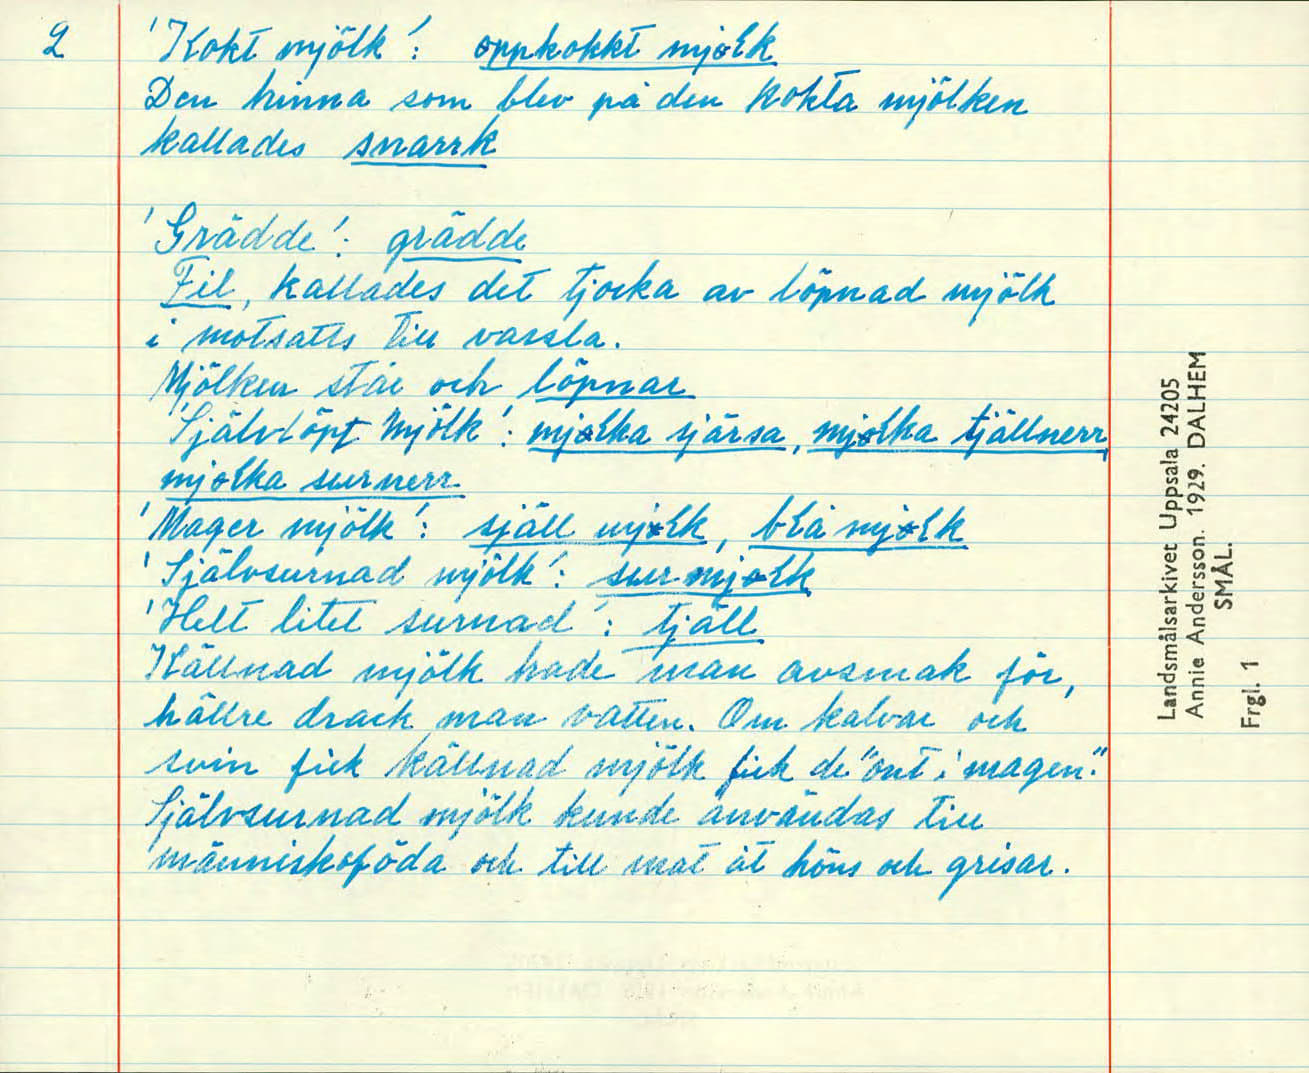 2
'Kokt mjölk': oppkokkt mjoLk
Den hinna som blev på den kokta mjölken
kallades snarrk
'Grädde': grädde
Fil, kallades det tjocka av löpnad mjölk
i motsatts till vassla.
Mjölken står och löpnar
'Självlöpt mjölk': mjoLka sjärsa, mjoLka tjällnerr,
mjoLka surnerr
'Mager mjölk': själl mjoLk, bLå mjoLk
'Självsurnad mjölk': sur mjoLk
'Helt litet surnad': tjäll
Källnad mjölk hade man avsmak för,
hällre drack man vatten. Om kalvar och
svin fick källnad mjölk fick de "ont i magen".
Självsurnad mjölk kunde användas till
människoföda och till mat åt höns och grisar.
Landsmålsarkivet Uppsala 24205
Annie Andersson. 1929. DALHEM
SMÅL.
Frgl. 1